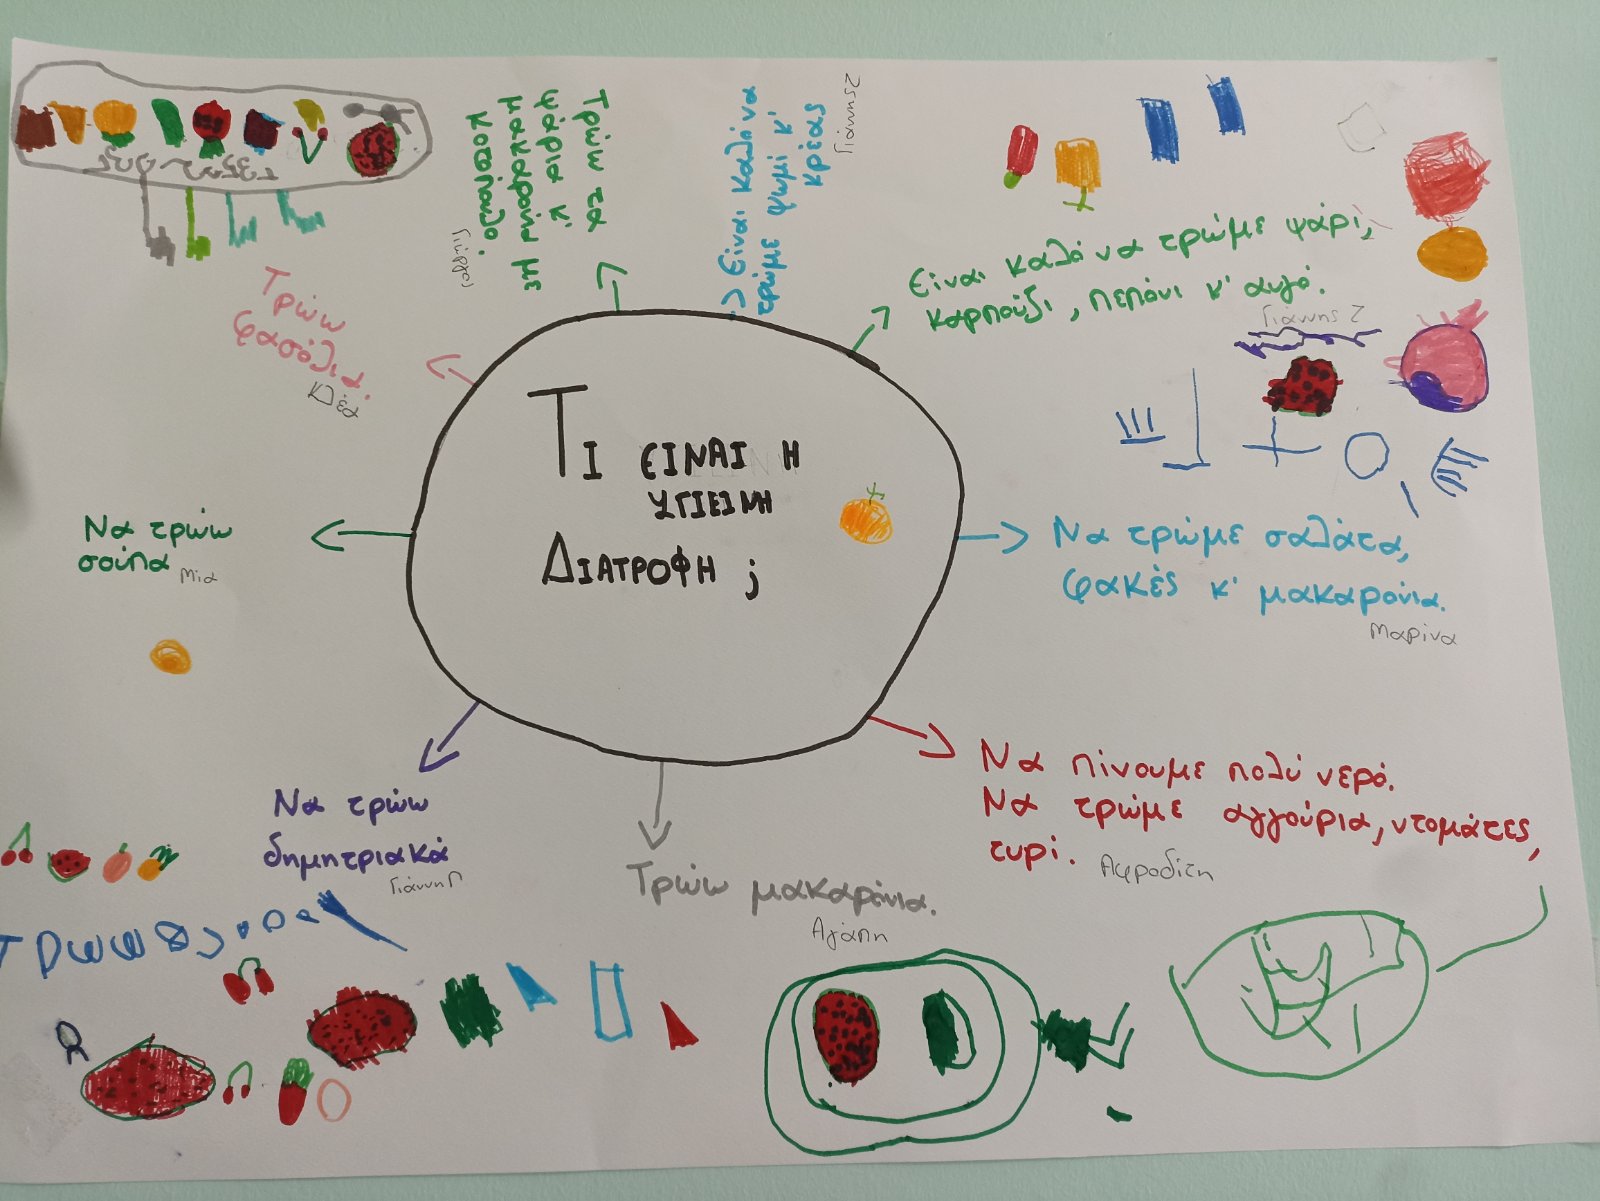 Τι ΕΙΝΑΙ Η
ΥΓΙΕΙΝΗ
ΔΙΑΤΡΟΦΗ ;
Τρώω τα
ψάρια κ'
μακαρόνια με
κοτόπουλο.
Γιώργος
Είναι καλό να
τρώμε ψωμί κ'
κρέας
Γιάννης
Είναι καλό να τρώμε ψάρι,
καρπούζι, πεπόνι κ' αυγό.
Γιάννης Ζ
Να τρώμε σαλάτα,
φακές κ' μακαρόνια.
Μαρίνα
Να πίνουμε πολύ νερό.
Να τρώμε αγγούρια, ντομάτες,
τυρί.
Αφροδίτη
Τρώω μακαρόνια.
Αγάπη
Να τρώω
δημητριακά
Γιάννη Π
Να τρώω
σούπα
Μία
Τρώω
φασόλια.
Κλέα